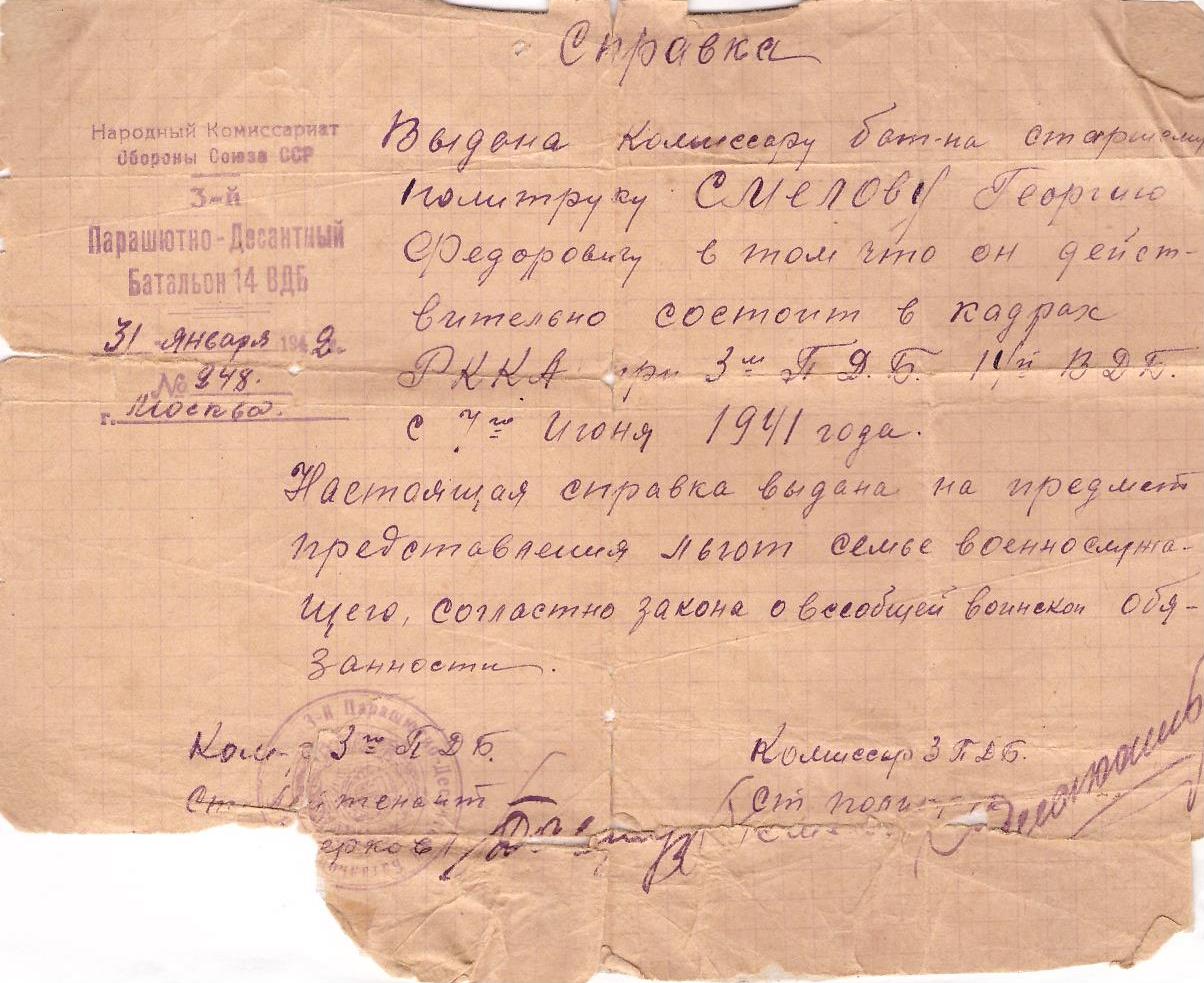 Справка
Народный Комиссариат
Обороны Союза ССР
3-й
Парашютно-Десантный
Батальон 14 ВДБ
31 января 1942г.
№ 248.
г. Москва.
Выдана Комиссару бат-на старшему
политруку СМЕЛОВУ Георгию
Федоровичу в том что он дейст-
вительно состоит в кадрах
РККА при 3м П.Д.Б. ВДБ.
с 7го Июня 1941 года.
Настоящая справка выдана на предмет
представления льгот семье военнослужа-
щего, согластно закона о всеобщей воинской обя-
занности.
3-й Парашютно-Де
Ком-р 3го ПДБ.
Ст. лейтенант
Комиссар 3 ПДБ.
Ст полит